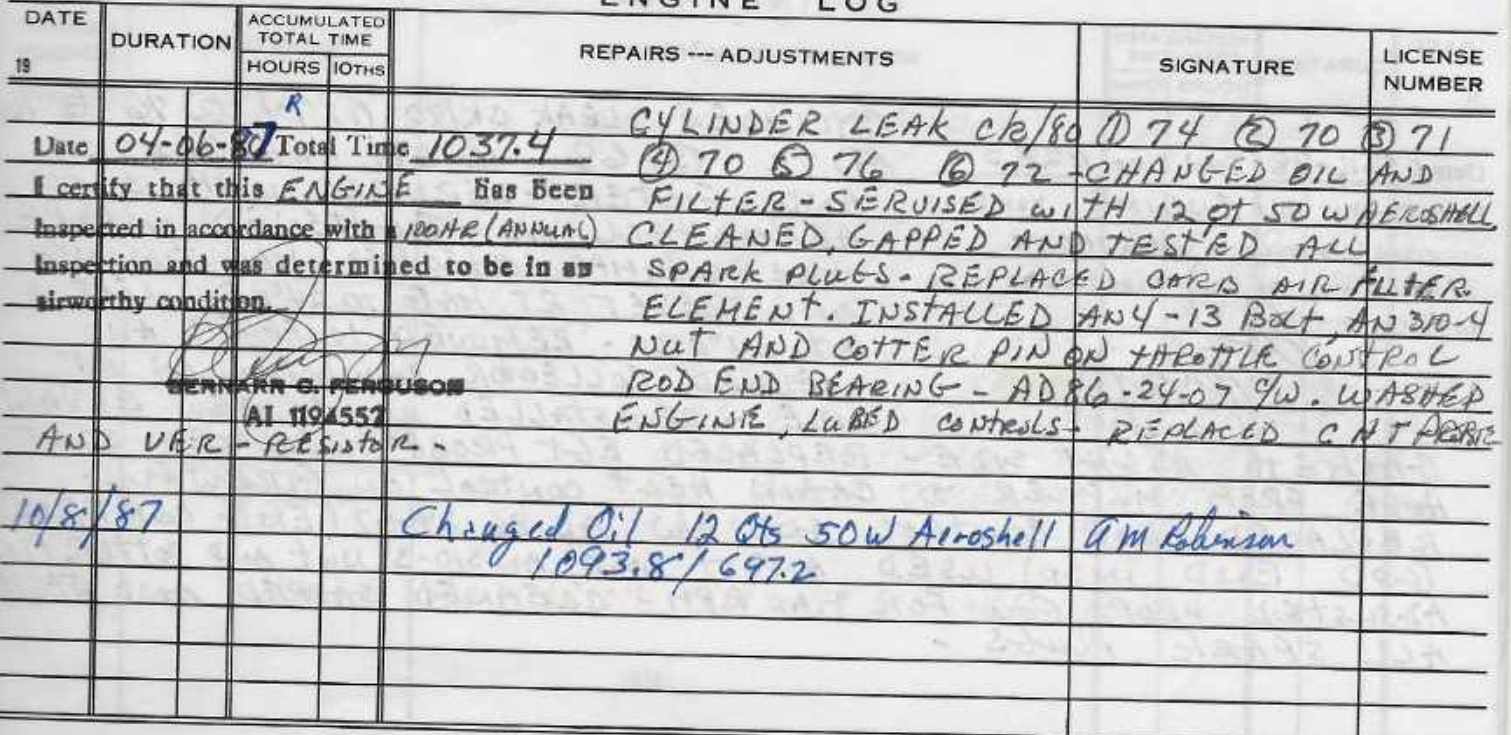 ENGINE LOG
DATE
19
DURATION
ACCUMULATED TOTAL TIME
HOURS 10THS
REPAIRS --- ADJUSTMENTS
SIGNATURE
LICENSE NUMBER
R
Date 04-06-87 Total Time 1037.4
I certify that this ENGINE has been
Inspected in accordance with a 100HR (ANNUAL)
Inspection and was determined to be in an
airworthy condition.
BERNARR C. FERGUSON
AI 1194552
CYLINDER LEAK CK/80 (1) 74 (2) 70 (3) 71
(4) 70 (5) 76 (6) 72 - CHANGED OIL AND
FILTER - SERVISED WITH 12 QT 50 W AEROSHELL,
CLEANED, GAPPED AND TESTED ALL
SPARK PLUGS - REPLACED CARB AIR FILTER
ELEMENT. INSTALLED AN4-13 BOLT, AN310-4
NUT AND COTTER PIN ON THROTTLE CONTROL
ROD END BEARING - AD 86-24-07 C/W. WASHED
ENGINE, LUBED CONTROLS - REPLACED CHT PROBE
AND VER - RESISTOR -
10/8/87 Changed Oil 12 Qts 50W Aeroshell A M Robinson
1093.8 / 697.2